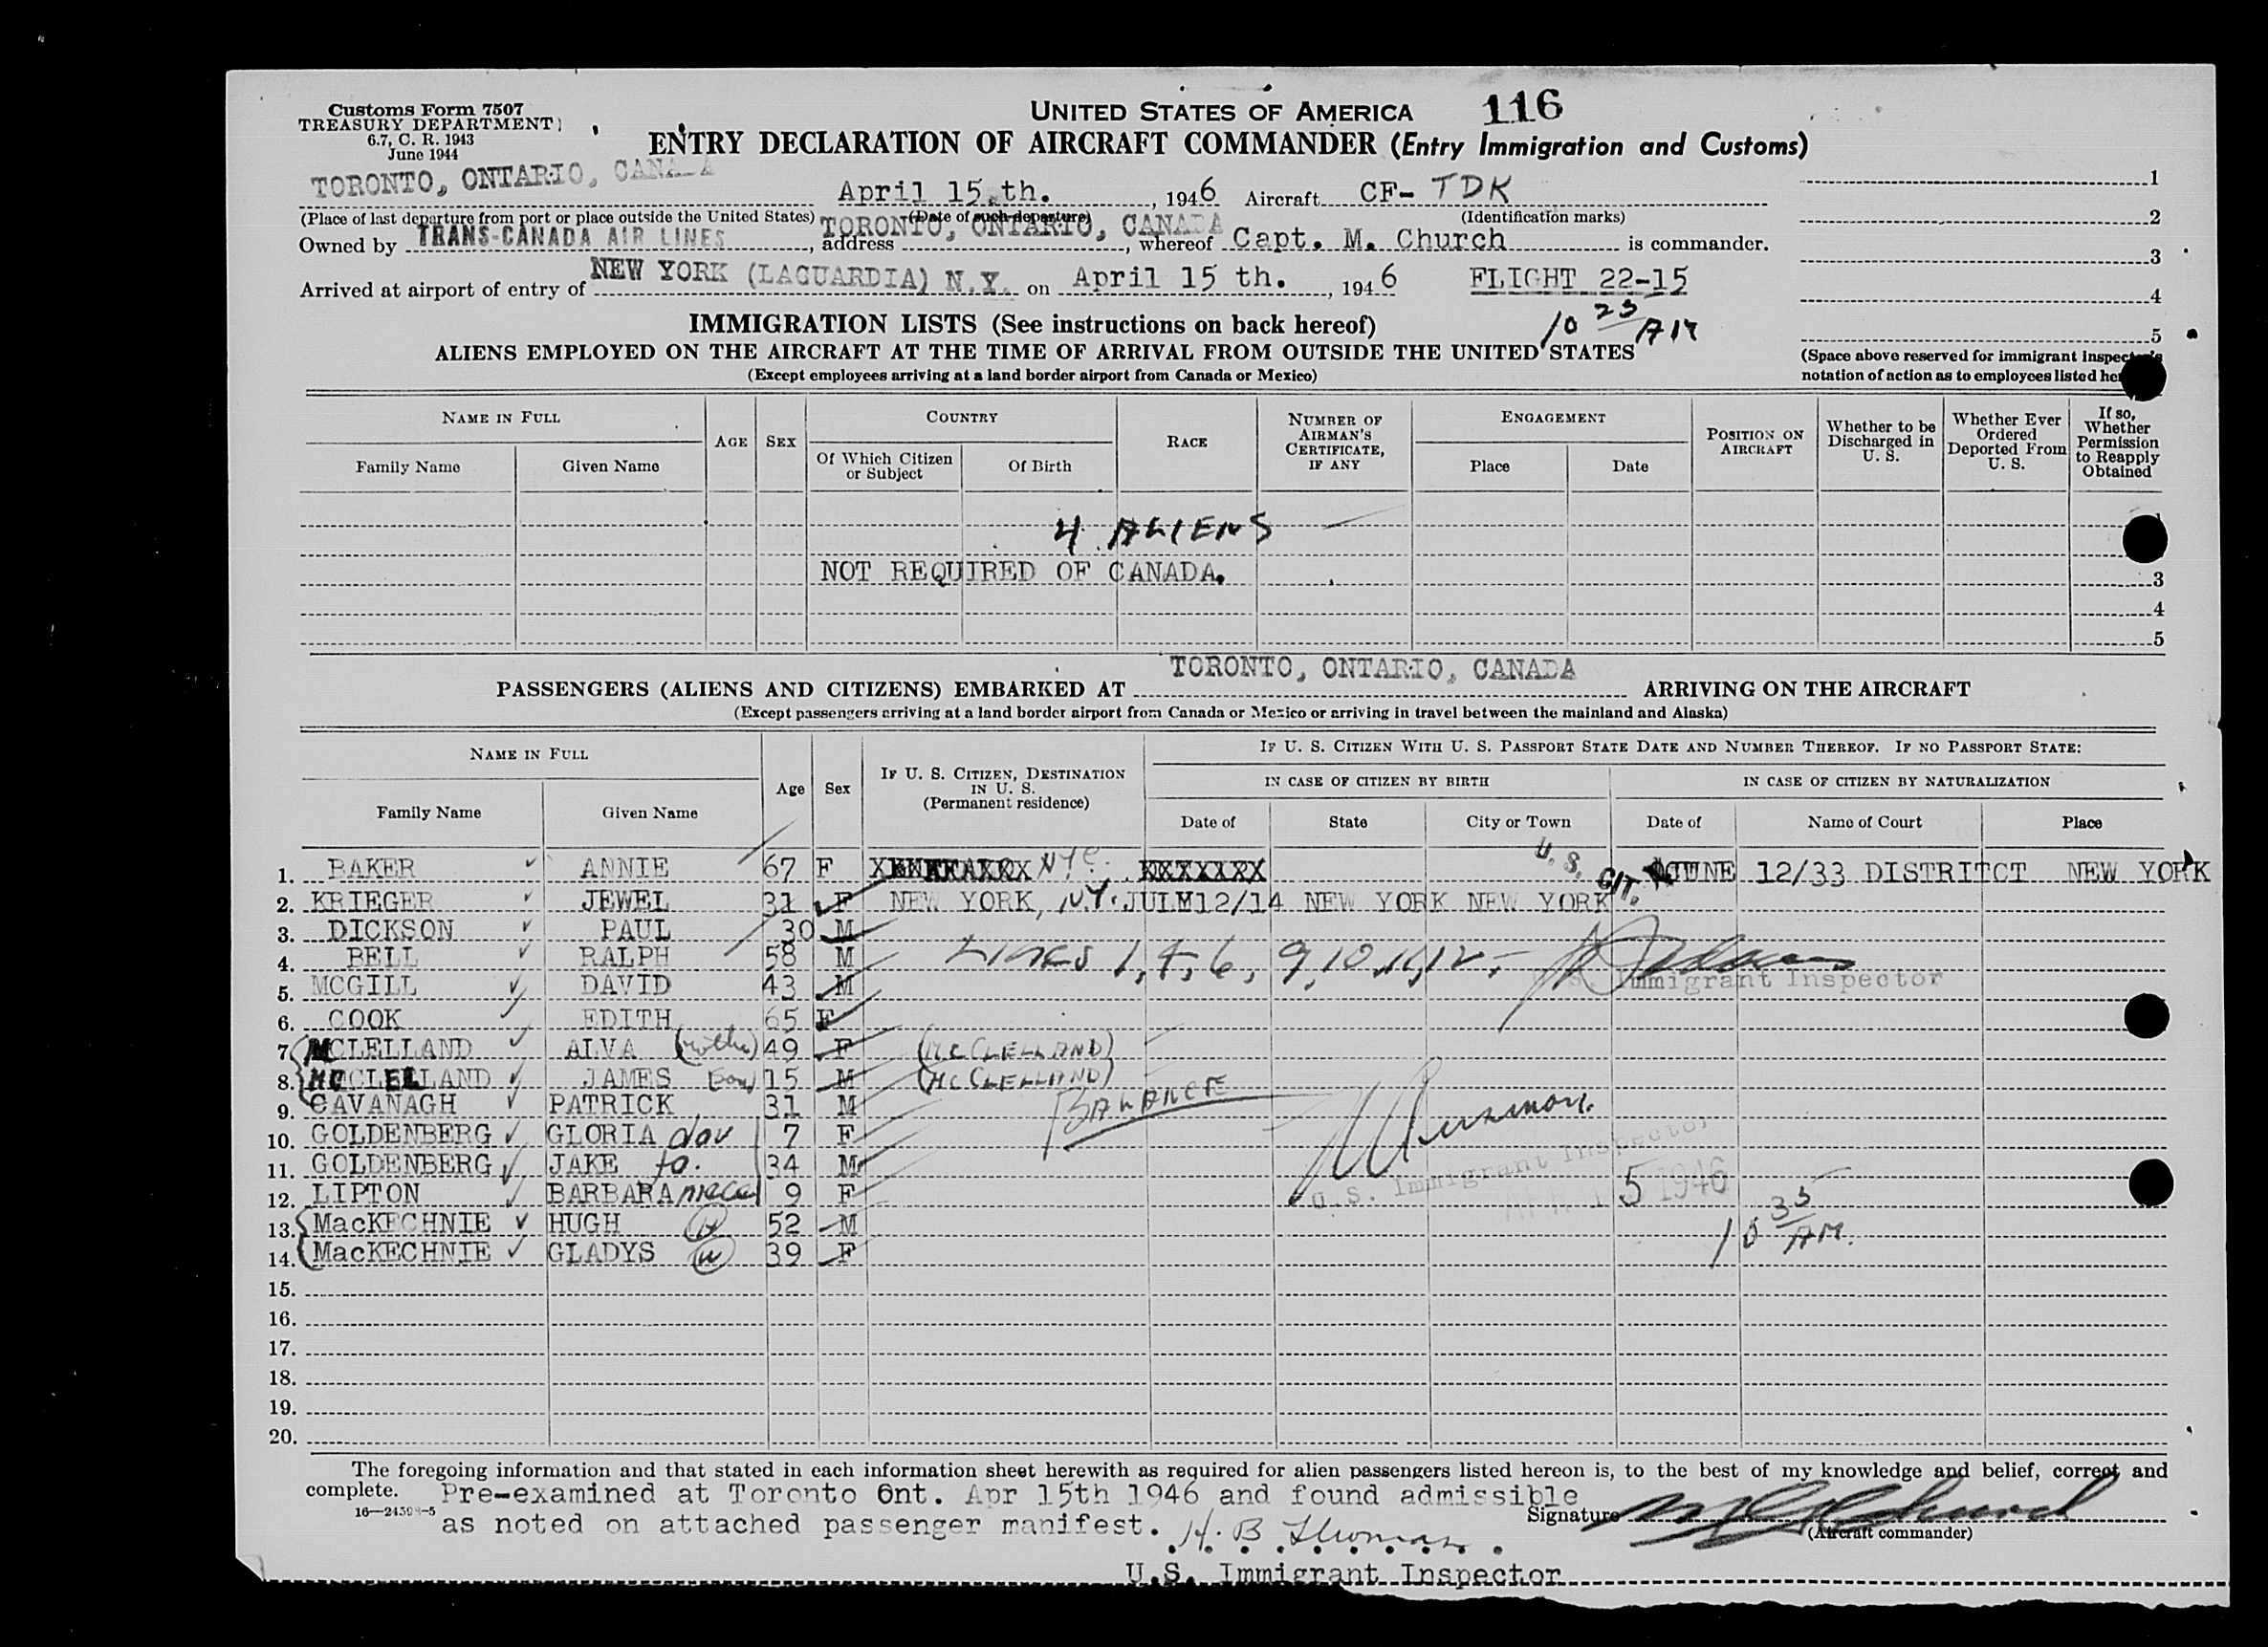 Customs Form 7507
TREASURY DEPARTMENT
6.7, C. R. 1943
June 1944
UNITED STATES OF AMERICA 116
ENTRY DECLARATION OF AIRCRAFT COMMANDER (Entry Immigration and Customs)
TORONTO, ONTARIO, CANADA April 15 th. , 1946 Aircraft CF- TDK 1
(Place of last departure from port or place outside the United States) (Date of such departure) (Identification marks) 2
Owned by TRANS-CANADA AIR LINES , address TORONTO, ONTARIO, CANADA , whereof Capt. M. Church is commander.
3
Arrived at airport of entry of NEW YORK (LAGUARDIA) N.Y. on April 15 th. , 1946 FLIGHT 22-15 4
IMMIGRATION LISTS (See instructions on back hereof) 10 23 AM 5
ALIENS EMPLOYED ON THE AIRCRAFT AT THE TIME OF ARRIVAL FROM OUTSIDE THE UNITED STATES
(Except employees arriving at a land border airport from Canada or Mexico)
(Space above reserved for immigrant
notation of action as to employees listed
NAME IN FULL AGE SEX COUNTRY RACE NUMBER OF AIRMAN'S CERTIFICATE, IF ANY ENGAGEMENT POSITION ON AIRCRAFT Whether to be Discharged in U. S. Whether Ever Ordered Deported From U. S. If so, Whether Permission to Reapply Obtained
Family Name Given Name Of Which Citizen or Subject Of Birth Place Date
4 ALIENS
NOT REQUIRED OF CANADA. 3
4
5
PASSENGERS (ALIENS AND CITIZENS) EMBARKED AT TORONTO, ONTARIO, CANADA ARRIVING ON THE AIRCRAFT
(Except passengers arriving at a land border airport from Canada or Mexico or arriving in travel between the mainland and Alaska)
NAME IN FULL Age Sex IF U. S. CITIZEN, DESTINATION IN U. S. (Permanent residence) IF U. S. CITIZEN WITH U. S. PASSPORT STATE DATE AND NUMBER THEREOF. IF NO PASSPORT STATE:
IN CASE OF CITIZEN BY BIRTH IN CASE OF CITIZEN BY NATURALIZATION
Family Name Given Name Date of State City or Town Date of Name of Court Place
1. BAKER ANNIE 67 F NYC. U. S. CIT. JUNE 12/33 DISTRITCT NEW YORK
2. KRIEGER JEWEL 31 F NEW YORK, N.Y. JULY12/14 NEW YORK NEW YORK
3. DICKSON PAUL 30 M
4. BELL RALPH 58 M Lines 1, 4, 6, 9, 10, 11, 12,
5. MCGILL DAVID 43 M Immigrant Inspector
6. COOK EDITH 65 F
7. MCLELLAND ALVA (mother) 49 F (McCLELLAND)
8. MCCLELLAND JAMES (son) 15 M (McCLELLAND)
9. CAVANAGH PATRICK 31 M BALANCE
10. GOLDENBERG GLORIA dau 7 F
11. GOLDENBERG JAKE fa. 34 M U.S. Immigrant Inspector
12. LIPTON BARBARA niece 9 F 15 1946
13. MacKECHNIE HUGH (H) 52 M 10 35 AM.
14. MacKECHNIE GLADYS (W) 39 F
15.
16.
17.
18.
19.
20.
The foregoing information and that stated in each information sheet herewith as required for alien passengers listed hereon is, to the best of my knowledge and belief, correct and
complete. Pre-examined at Toronto Ont. Apr 15th 1946 and found admissible
as noted on attached passenger manifest. H. B. Thomas Signature
(Aircraft commander)
U.S. Immigrant Inspector